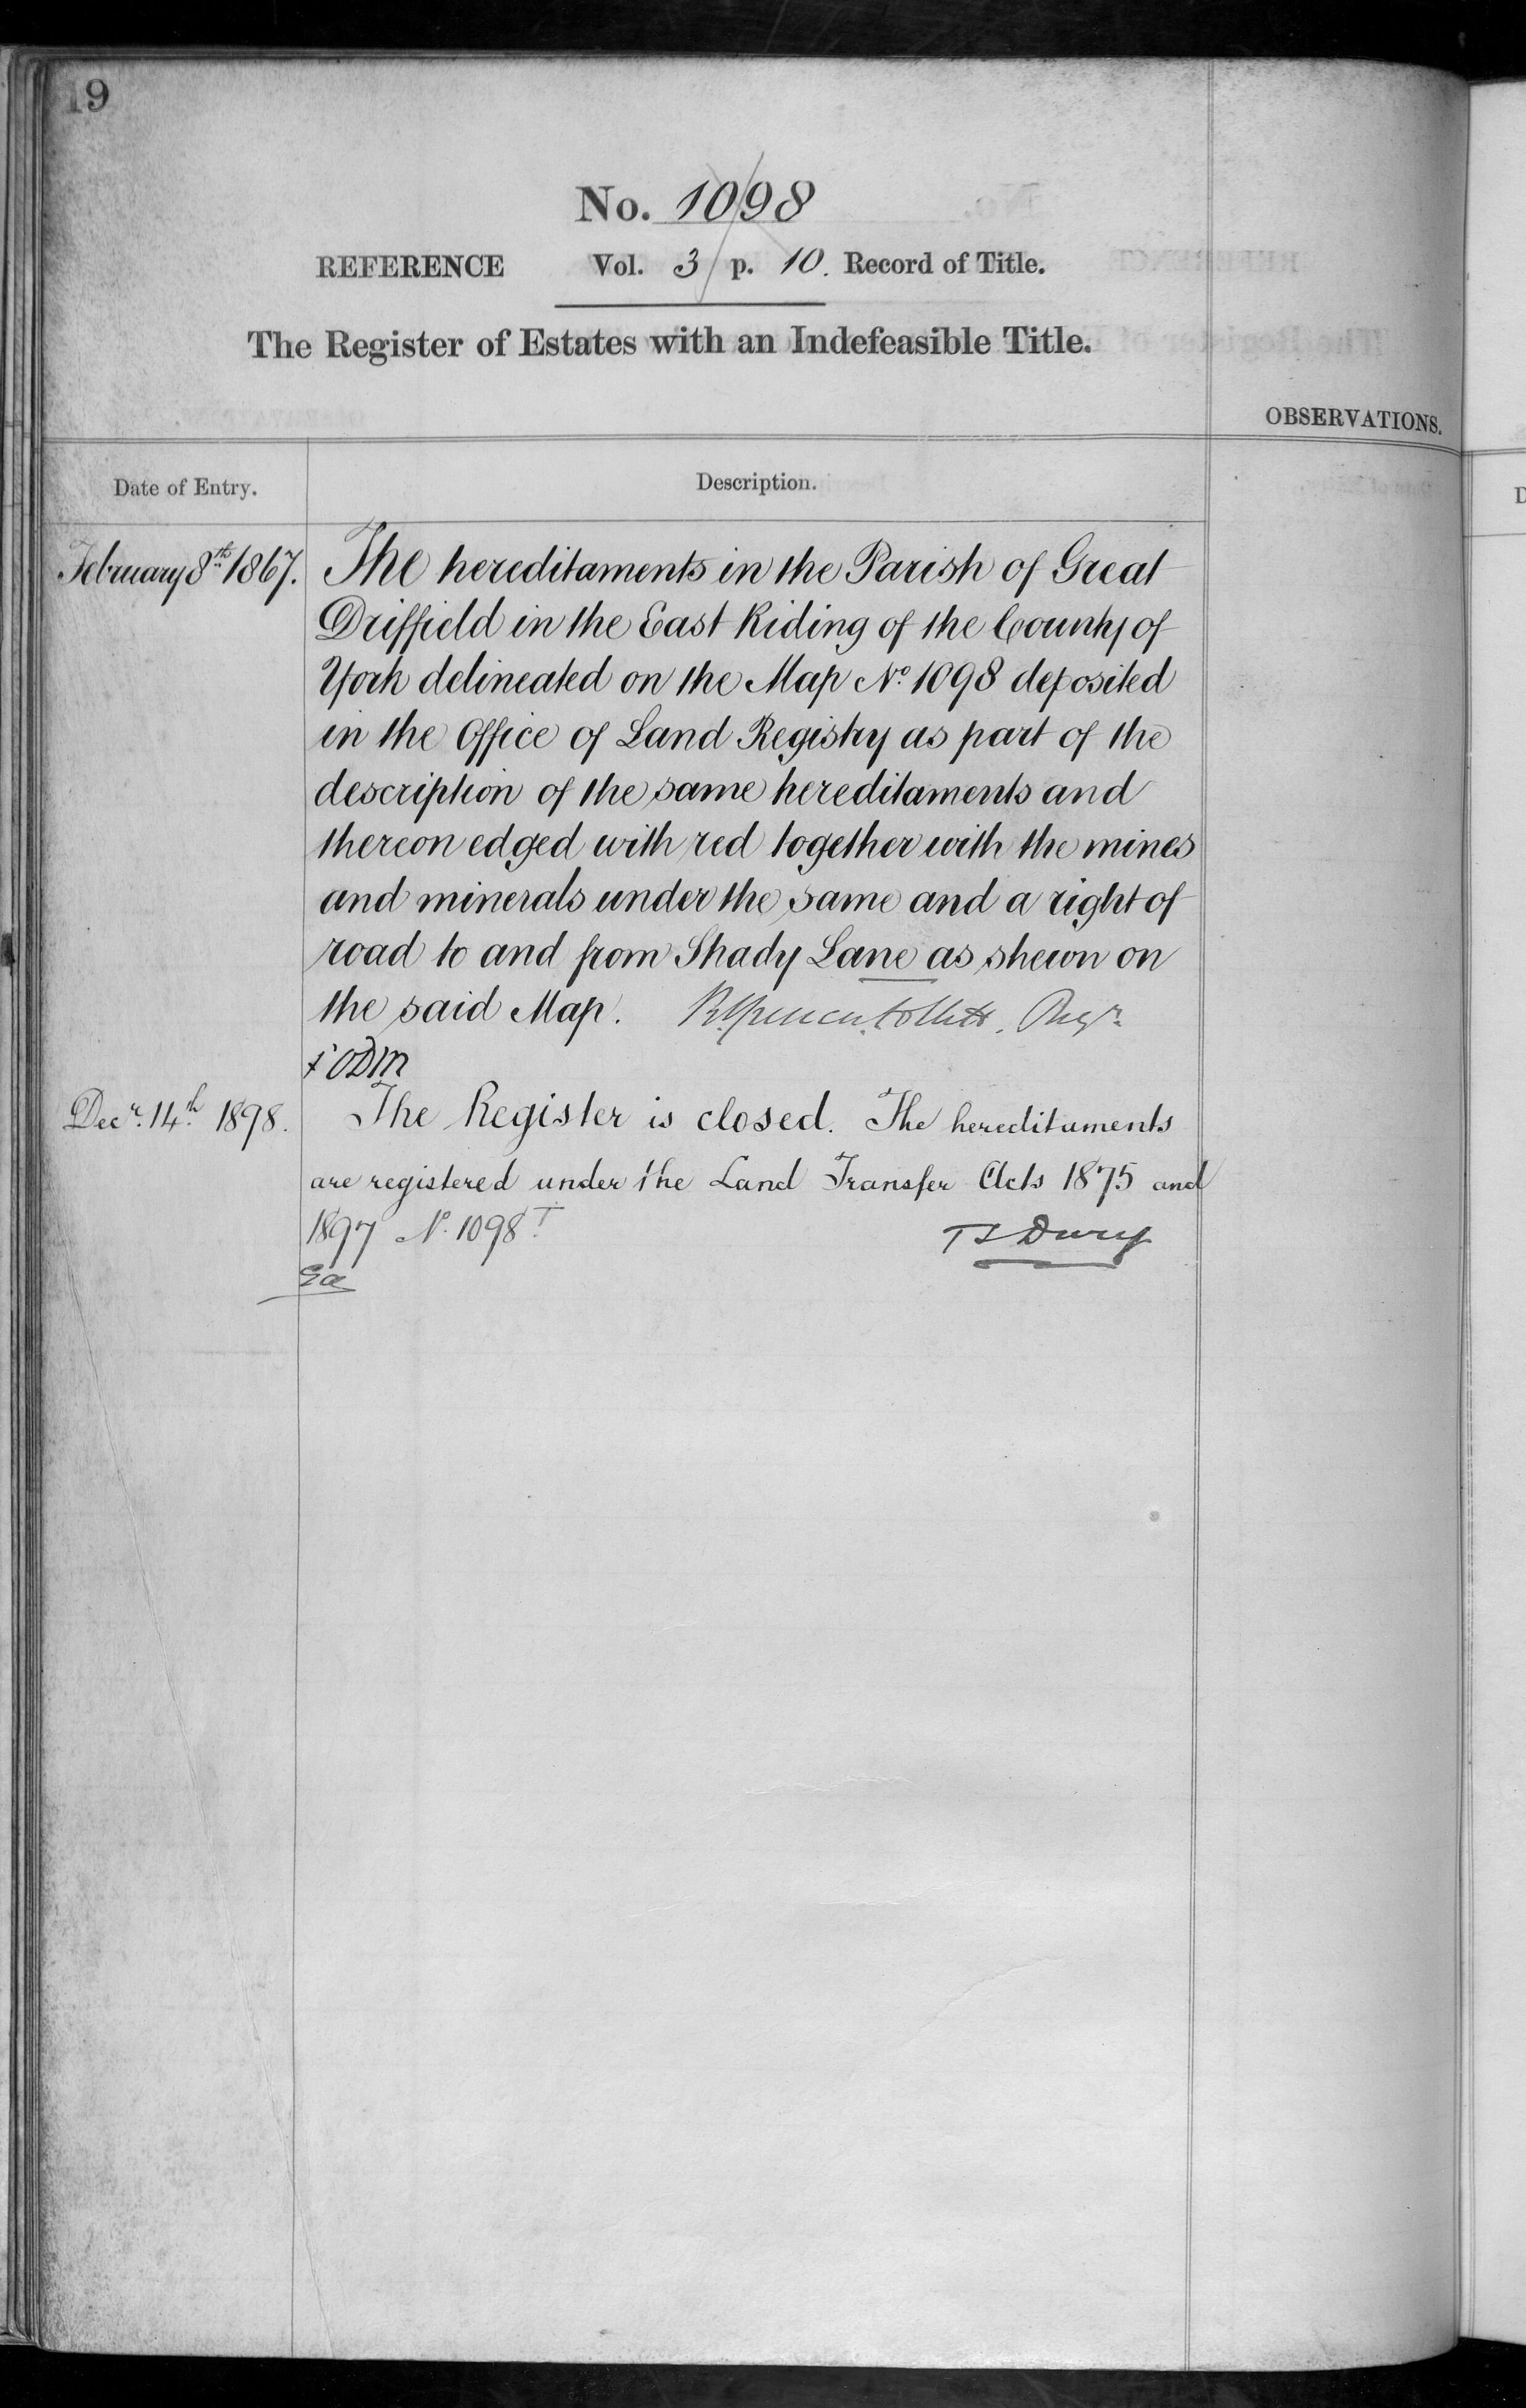 19
No. 1098
REFERENCE Vol. 3 p. 10. Record of Title.
The Register of Estates with an Indefeasible Title.
OBSERVATIONS.
Date of Entry. Description.
February 8th 1867. The hereditaments in the Parish of Great
Driffield in the East Riding of the County of
York delineated on the Map No. 1098 deposited
in the Office of Land Registry as part of the
description of the same hereditaments and
thereon edged with red together with the mines
and minerals under the same and a right of
road to and from Shady Lane as shewn on
the said Map. Regr.
ODM
Decr. 14th 1898. The Register is closed. The hereditaments
are registered under the Land Transfer Acts 1875 and
1897 No. 1098T. Drury